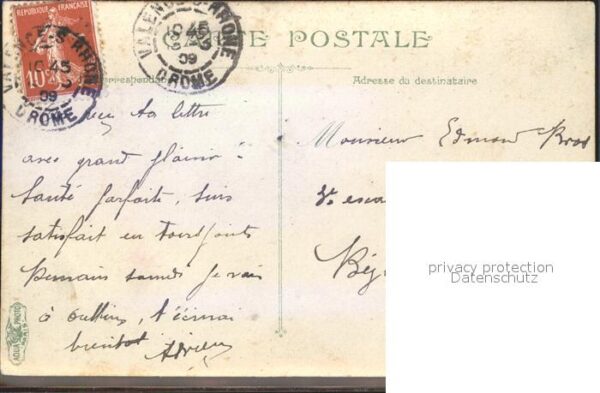 RÉPUBLIQUE FRANÇAISE
10c
VALENCE-S-RHONE
10 45
09
DROME
VALENCE-S-RHONE
10 45
09
DROME
CARTE POSTALE
Correspondance
Adresse du destinataire
reçu ta lettre
avec grand plaisir
Santé parfaite, suis
satisfait en tout points
Demain samedi je vais
à Oullins, t'écrirai
bientôt
Monsieur Edmond
privacy protection
Datenschutz